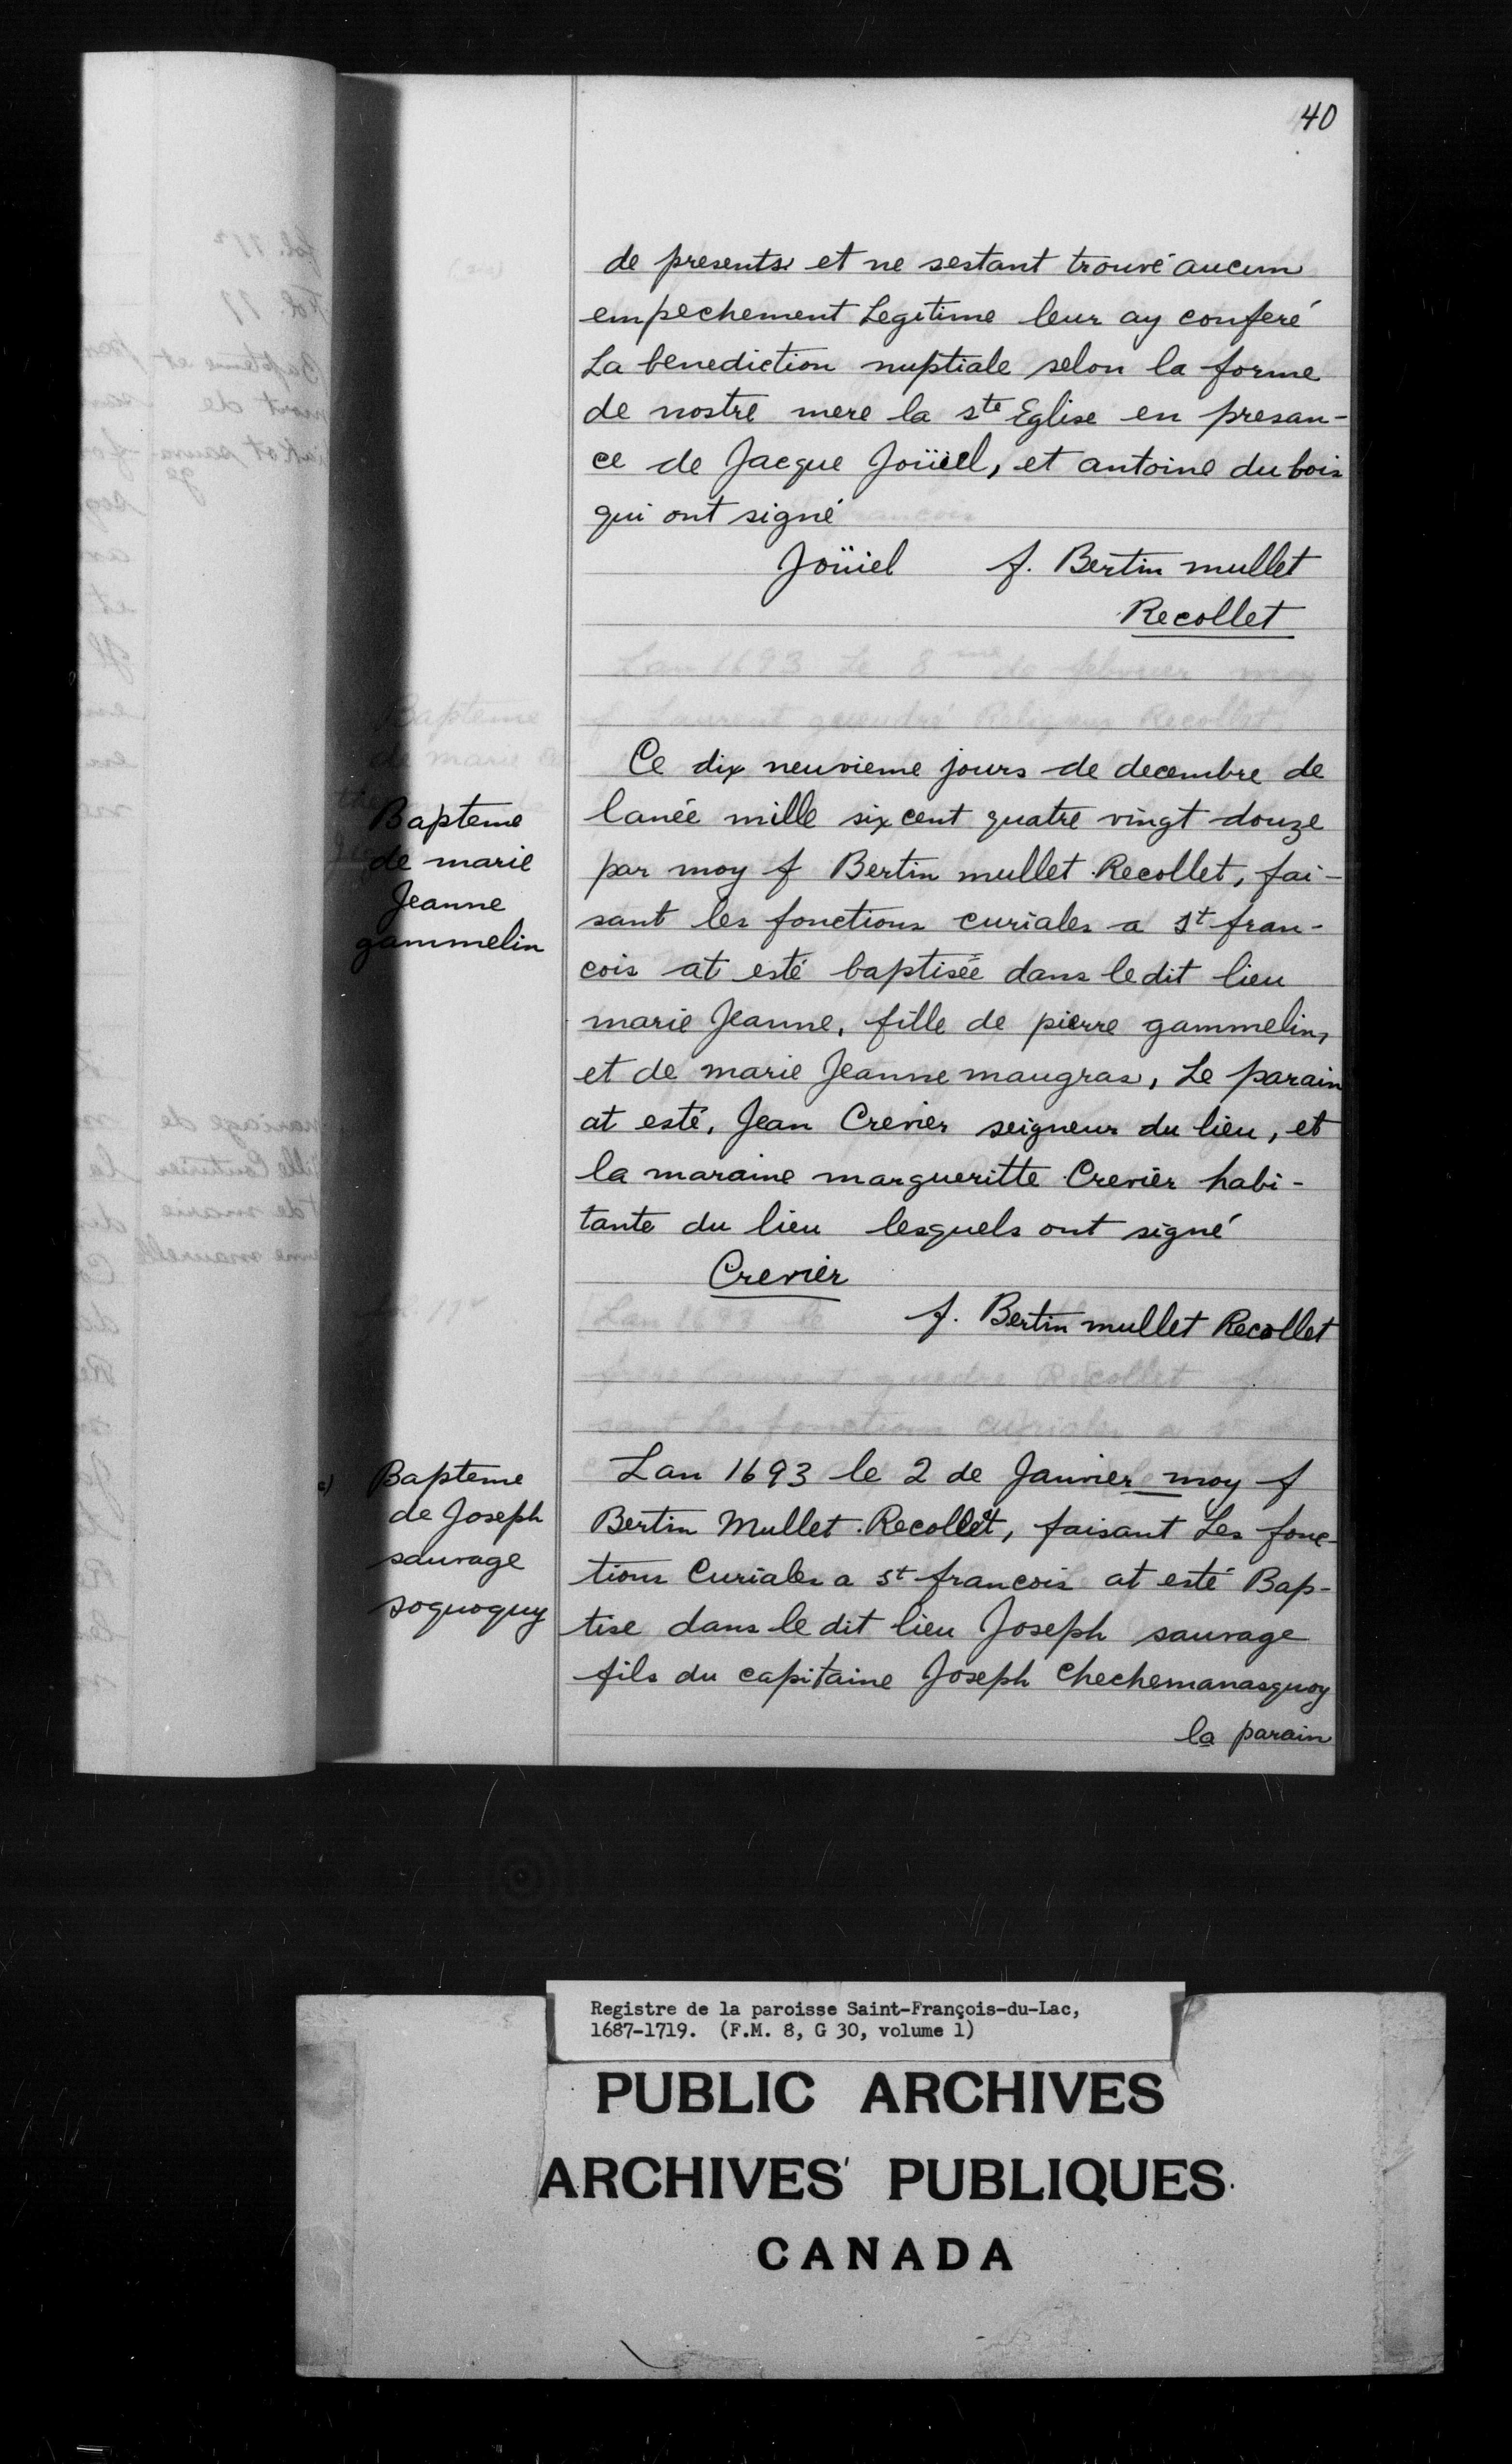 40
de presents et ne sestant trouvé aucun
empechement Legitime leur ay conferé
La benediction nuptiale selon la forme
de nostre mere la ste Eglise en presan-
ce de Jacque Joüiel, et antoine dubois
qui ont signé
Joüiel f. Bertin mullet
Recollet
Bapteme
de marie
Jeanne
gammelin
Ce dix neuvieme jours de decembre de
lanée mille six cent quatre vingt douze
par moy f Bertin mullet Recollet, fai-
sant les fonctions curiales a st fran-
cois at esté baptisée dans ledit lieu
marie Jeanne, fille de pierre gammelin,
et de marie Jeanne maugras, Le parain
at esté, Jean Crevier seigneur du lieu, et
la maraine margueritte Crevier habi-
tante du lieu lesquels ont signé
Crevier
f. Bertin mullet Recollet
Bapteme
de Joseph
sauvage
soquoquy
Lan 1693 le 2 de Janvier moy f
Bertin Mullet Recollet, faisant Les fonc-
tions Curiales a st francois at esté Bap-
tise dans le dit lieu Joseph sauvage
fils du capitaine Joseph Chechemanasquoy
la parain
Registre de la paroisse Saint-François-du-Lac,
1687-1719. (F.M. 8, G 30, volume 1)
PUBLIC ARCHIVES
ARCHIVES PUBLIQUES
CANADA